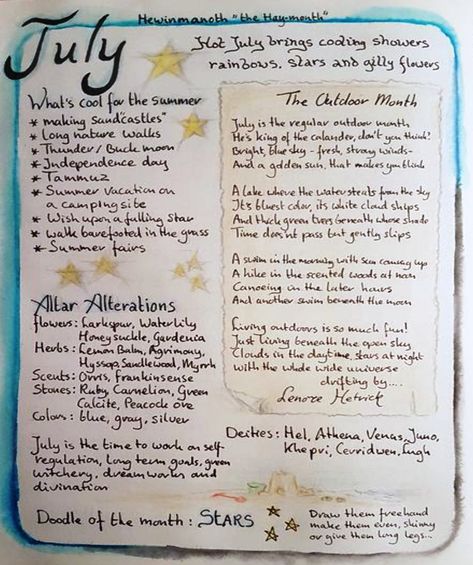 July
Hewinmanoth "the Hay-month"
Hot July brings cooling showers
rainbows, stars and gilly flowers
What's cool for the summer
* making sand "castles"
* Long nature walks
* Thunder/Buck moon
* Independence day
* Tammuz
* Summer vacation on
a camping site
* Wish upon a falling star
* walk barefooted in the grass
* Summer fairs
Altar Alterations
flowers: Larkspur, Water Lily
Honeysuckle, Gardenia
Herbs: Lemon Balm, Agrimony,
Hyssop, Sandlewood, Myrrh
Scents: Orris, Frankinsense
Stones: Ruby, Carnelion, Green
Calcite, Peacock Ore
Colors: blue, gray, silver
July is the time to work on self-
regulation, long term goals, green
witchery, dreamwork and
divination
The Outdoor Month
July is the regular outdoor month
He's king of the calander, don't you think!
Bright, blue sky - fresh, strong winds-
And a golden sun, that makes you blink
A lake where the water steals from the sky
It's bluest color, its white cloud ships
And thick green trees beneath whose shade
Time does'nt pass but gently slips
A swim in the morning with sun coming up
A hike in the scented woods at noon
Canoeing in the later hours
And another swim beneath the moon
Living outdoors is so much fun!
Just living beneath the open sky
Clouds in the daytime, stars at night
with the whole wide universe
drifting by....
Lenore Hetrick
Deities: Hel, Athena, Venus, Juno,
Khepri, Cerridwen, Lugh
Doodle of the month: STARS
Draw them freehand
make them even, skinny
or give them long legs...